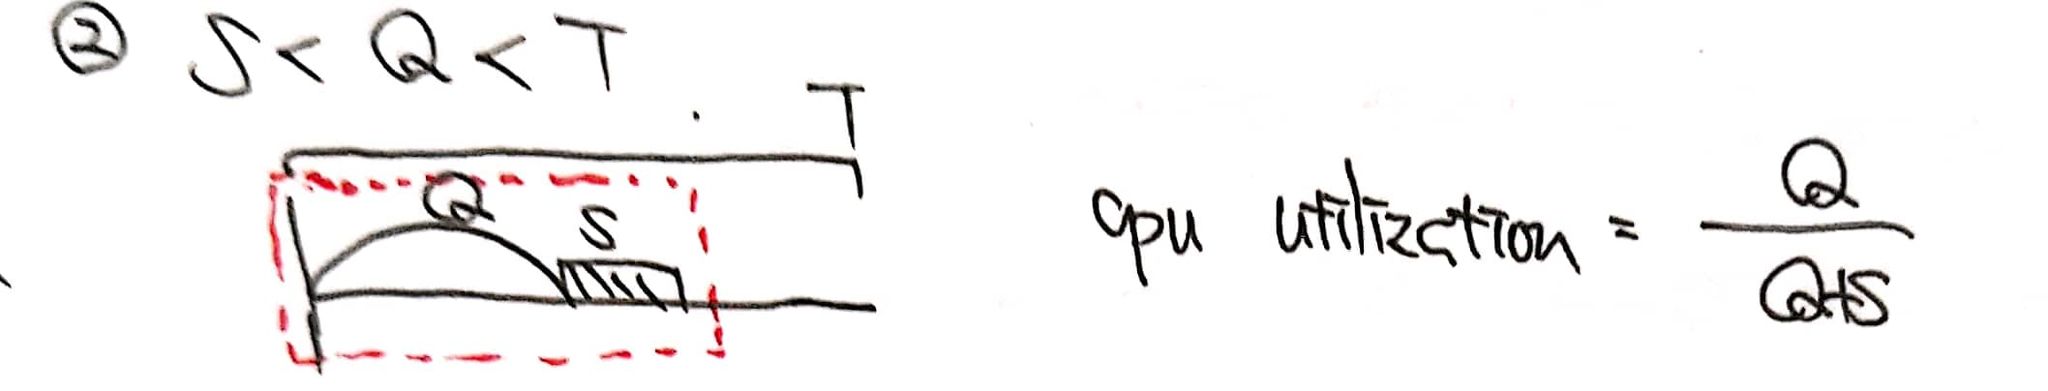 ② S < Q < T
T
Q
S
cpu utilization = Q
Q+S